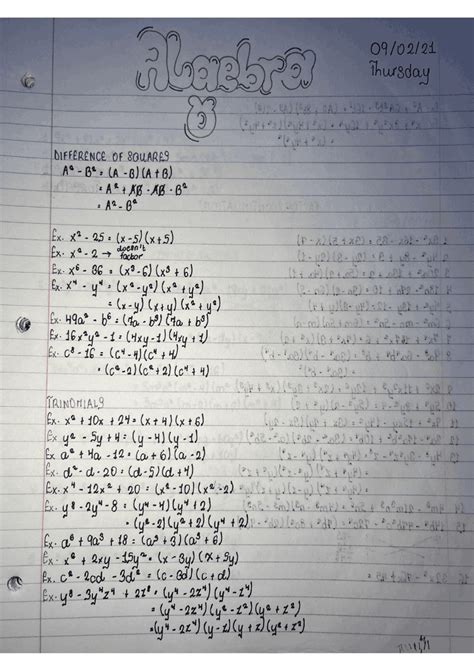 Algebra
09/02/21
Thursday
DIFFERENCE OF SQUARES
A² - B² = (A - B)(A + B)
= A² + AB - AB - B²
= A² - B²
Ex. x² - 25 = (x-5)(x+5)
Ex. x² - 2 → doesn't factor
Ex. x⁶ - 36 = (x³-6)(x³+6)
Ex. x⁴ - y⁴ = (x²-y²)(x²+y²)
= (x-y)(x+y)(x²+y²)
Ex. 49a² - b⁶ = (7a - b³)(7a + b³)
Ex. 16x²y² - 1 = (4xy-1)(4xy+1)
Ex. c⁸ - 16 = (c⁴-4)(c⁴+4)
= (c²-2)(c²+2)(c⁴+4)
TRINOMIALS
Ex. x² + 10x + 24 = (x+4)(x+6)
Ex. y² - 5y + 4 = (y-4)(y-1)
Ex a² + 4a - 12 = (a+6)(a-2)
Ex. d² - d - 20 = (d-5)(d+4)
Ex. x⁴ - 12x² + 20 = (x²-10)(x²-2)
Ex. y⁸ - 2y⁴ - 8 = (y⁴-4)(y⁴+2)
= (y²-2)(y²+2)(y⁴+2)
Ex. a⁶ + 9a³ + 18 = (a³+3)(a³+6)
Ex. x² + 2xy - 15y² = (x-3y)(x+5y)
Ex. c² - 2cd - 3d² = (c-3d)(c+d)
Ex. y⁸ - 3y⁴z⁴ + 2z⁸ = (y⁴-2z⁴)(y⁴-z⁴)
= (y⁴-2z⁴)(y²-z²)(y²+z²)
= (y⁴-2z⁴)(y-z)(y+z)(y²+z²)